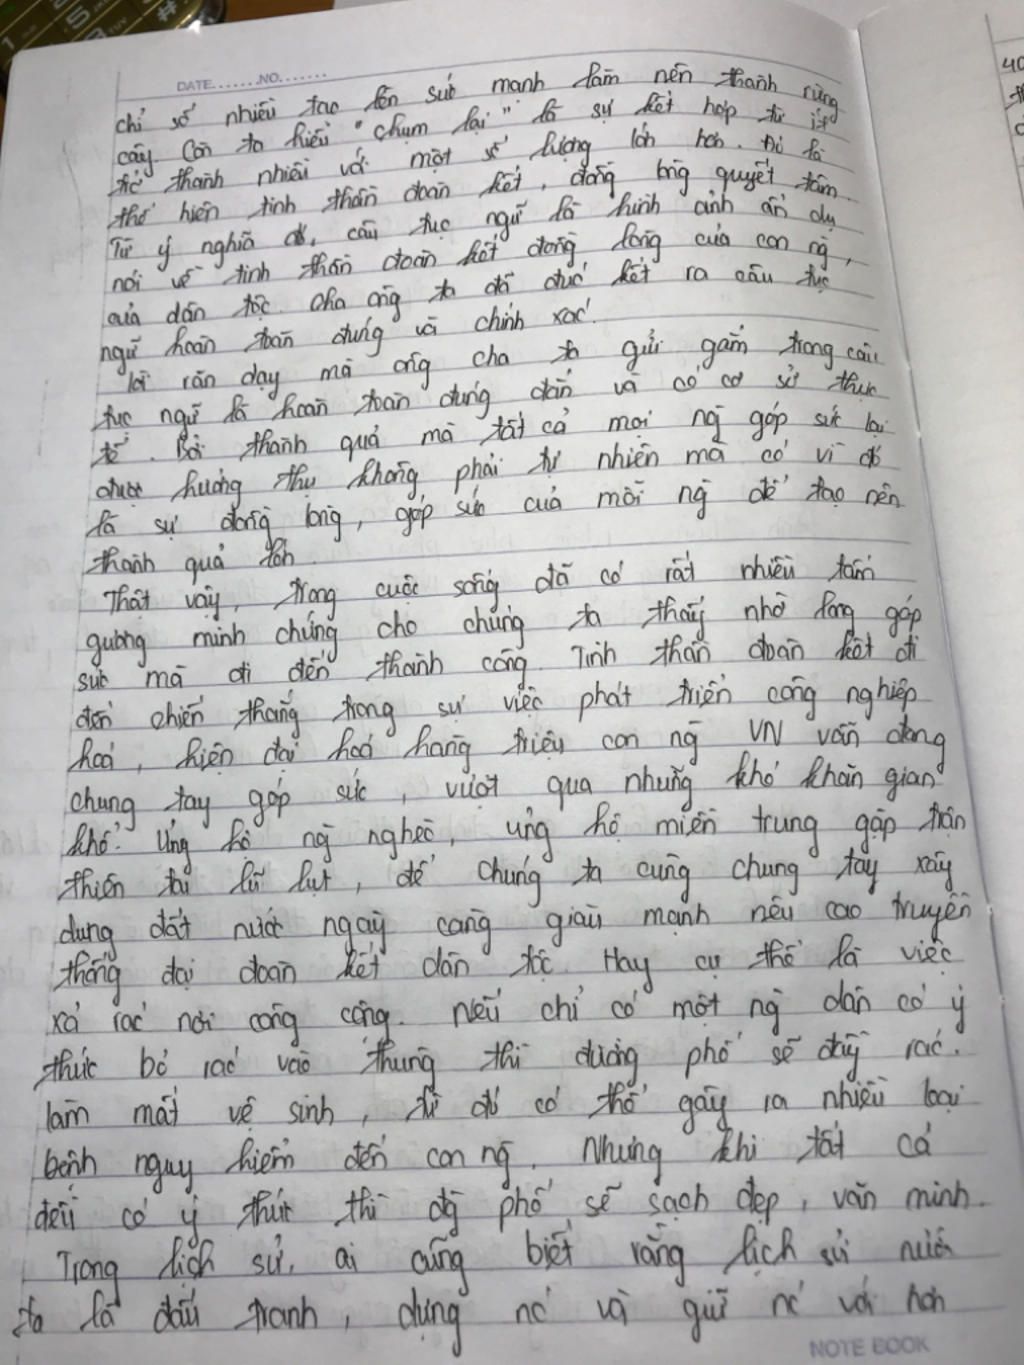 DATE.......NO.......
chỉ số nhiều tạo lên sức mạnh làm nên thành rừng
cây. Còn ta hiểu "chụm lại" là sự kết hợp từ ít
trở thành nhiều với một số lượng lớn hơn. Đó là
thể hiện tinh thần đoàn kết, đồng lòng quyết tâm.
Từ ý nghĩa đó, câu tục ngữ là hình ảnh ẩn dụ
nói về tinh thần đoàn kết đồng lòng của con ng,
của dân tộc. cha ông ta đã đúc kết ra câu tục
ngữ hoàn toàn đúng và chính xác.
lời răn dạy mà ông cha ta gửi gắm trong câu
tục ngữ là hoàn toàn đúng đắn và có cơ sở thực
tế. Bởi thành quả mà tất cả mọi ng góp sức lại
được hưởng thụ không phải tự nhiên mà có vì đó
là sự đồng lòng, góp sức của mỗi ng để tạo nên
thành quả lớn.
Thật vậy, trong cuộc sống đã có rất nhiều tấm
gương minh chứng cho chúng ta thấy nhờ lòng góp
sức mà đi đến thành công. Tinh thần đoàn kết đi
đến chiến thắng trong sự việc phát triển công nghiệp
hoá, hiện đại hoá hàng triệu con ng VN vẫn đang
chung tay góp sức, vượt qua những khó khăn gian
khổ. Ủng hộ ng nghèo, ủng hộ miền trung gặp trận
thiên tai lũ lụt, để chúng ta cùng chung tay xây
dựng đất nước ngày càng giàu mạnh nêu cao truyền
thống đại đoàn kết dân tộc. Hay cụ thể là việc
xả rác nơi công cộng. Nếu chỉ có một ng dân có ý
thức bỏ rác vào thùng thì đường phố sẽ đầy rác.
làm mất vệ sinh, từ đó có thể gây ra nhiều loại
bệnh nguy hiểm đến con ng. Nhưng khi tất cả
đều có ý thức thì đg phố sẽ sạch đẹp, văn minh.
Trong lịch sử, ai cũng biết rằng lịch sử nước
ta là đấu tranh, dựng nc và giữ nc với hơn
NOTE BOOK